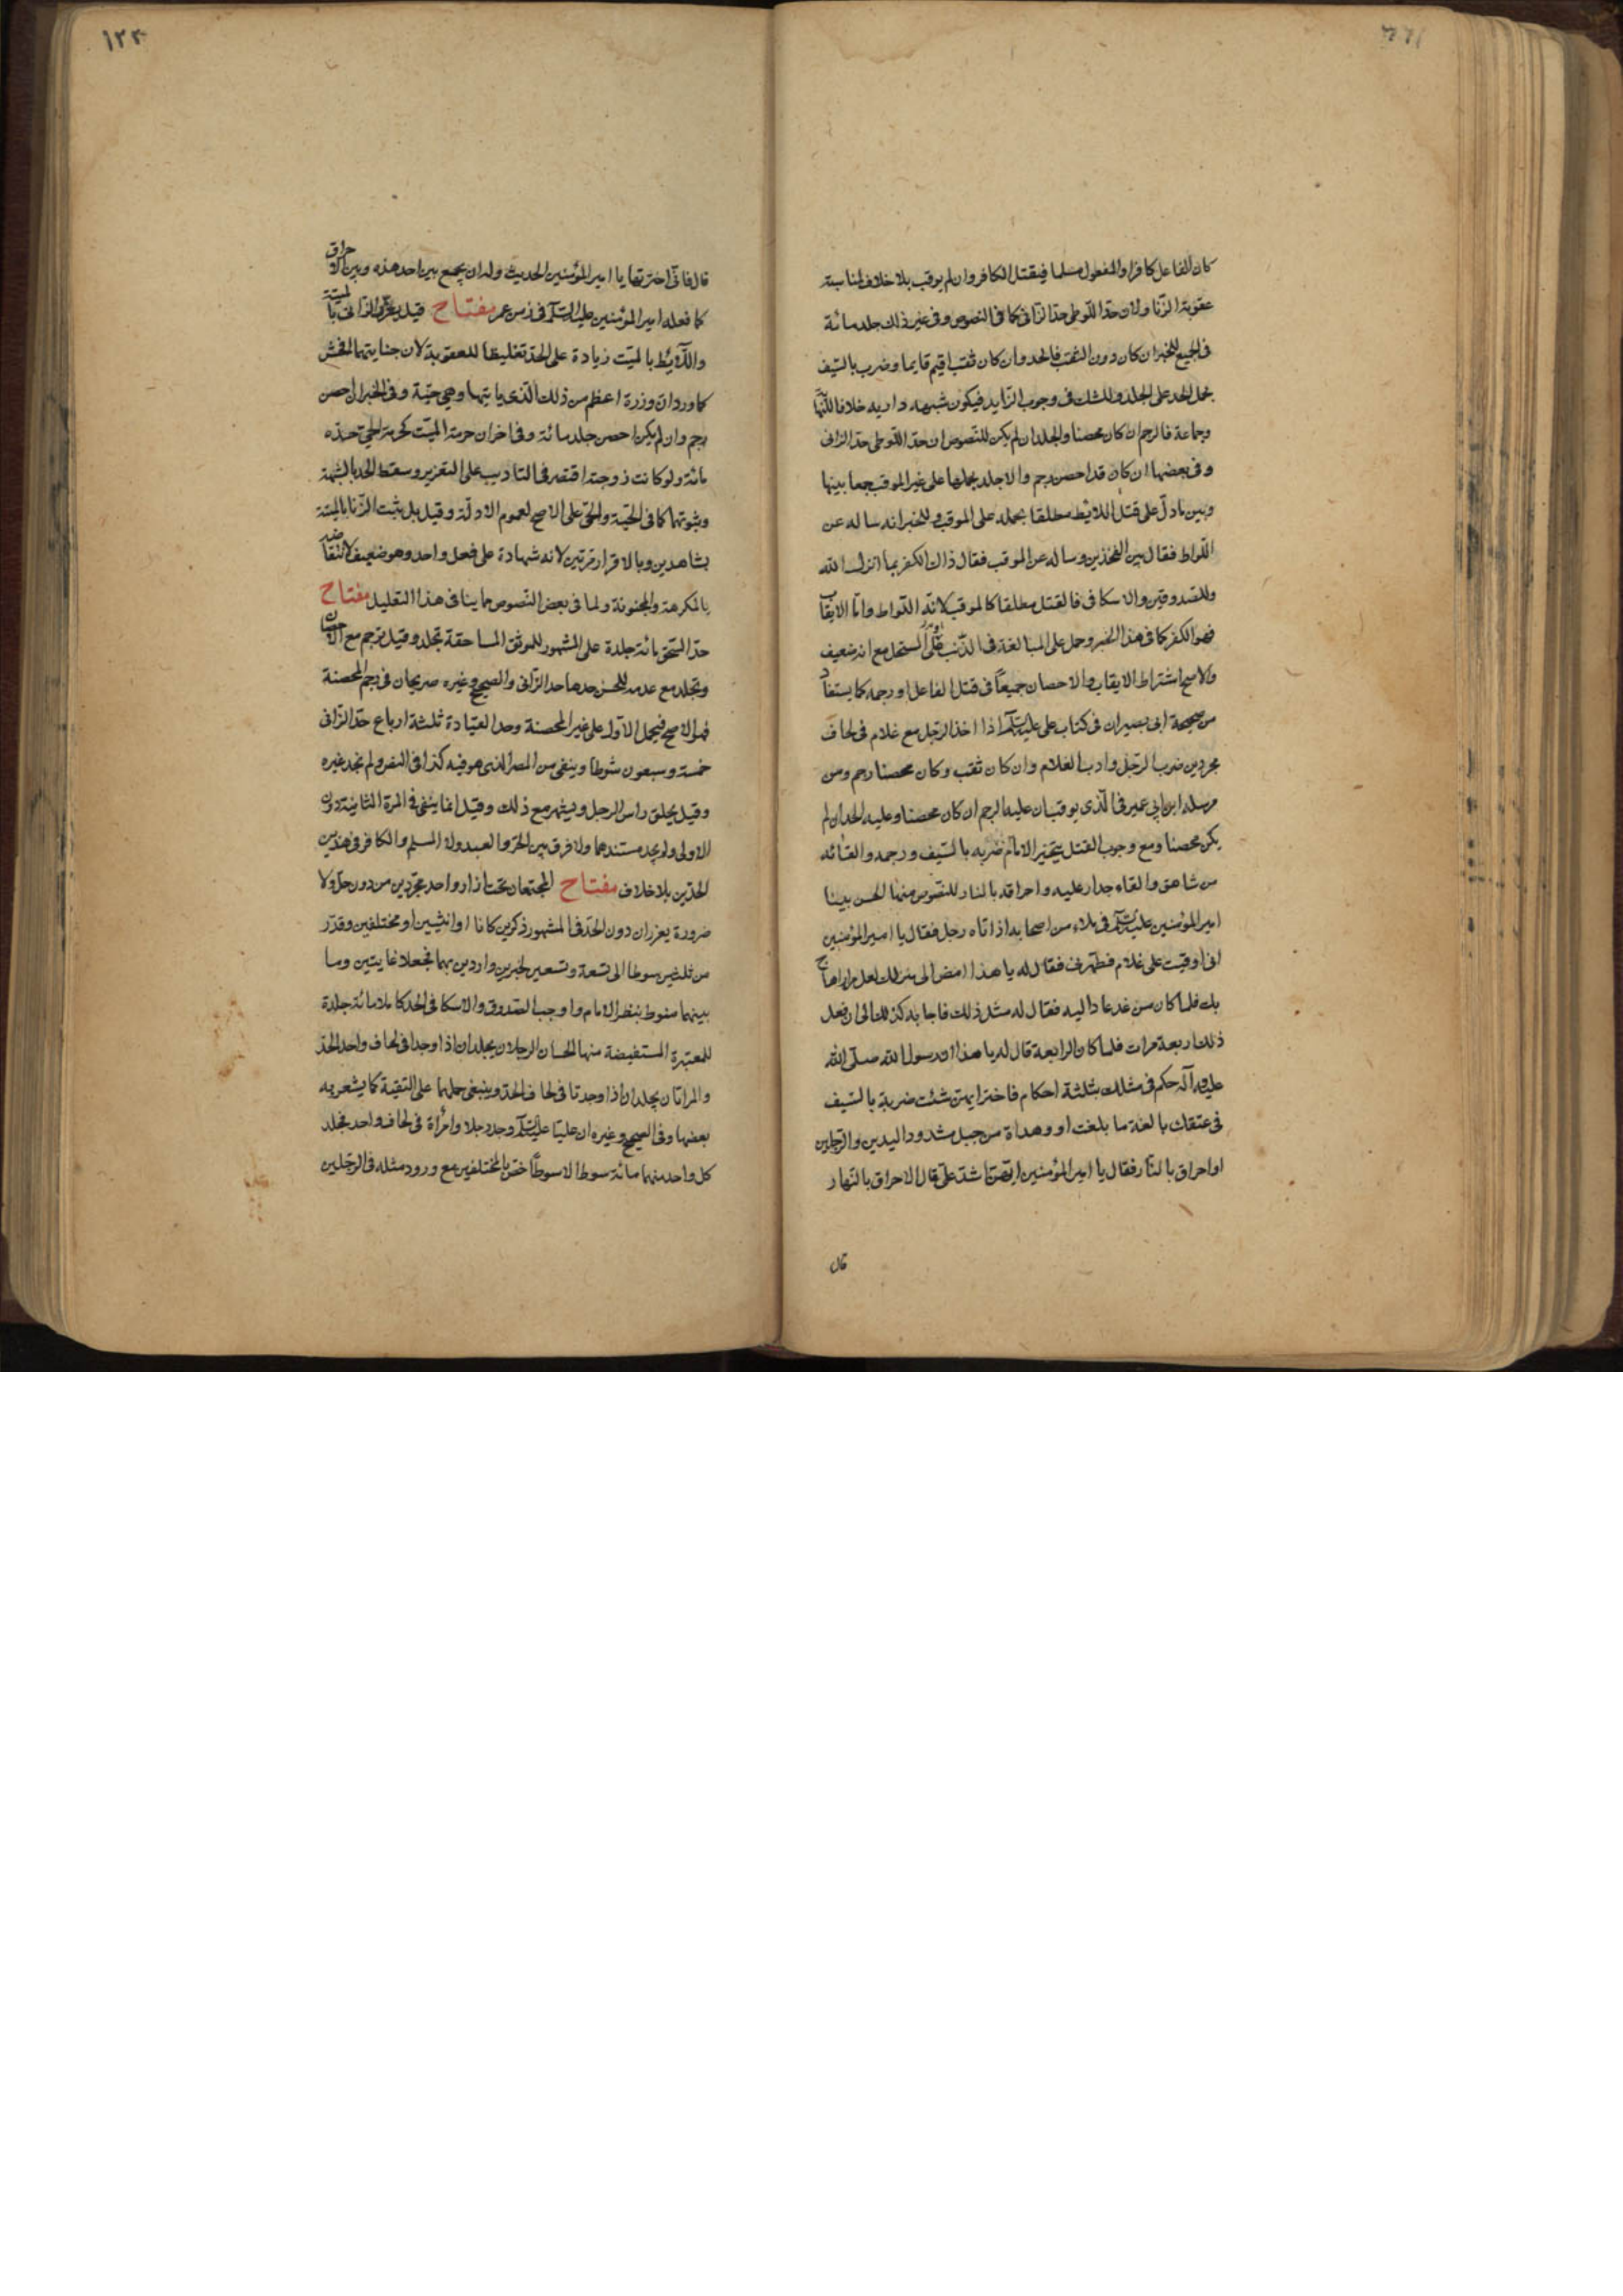 كان الفاعل كافرا والمفعول مسلما فيقتل الكافر وان لم يوقب بلا خلاف لمناسبة
عقوبة الزنا ولان حد اللوطي حد الزاني كما في النصوص وفي غير ذلك جلد مائة
في الجميع للخبر ان كان دون الثقب فالحد وان كان ثقب اقيم قايما وضرب بالسيف
بحمل الحد على الجلد وللشك في وجوب الزايد فيكون شبهة دارية خلافا للنها
وجماعة فالرجم ان كان محصنا والجلد ان لم يكن للنصوص ان حد اللوطي حد الزاني
وفي بعضها ان كان قد احصن رجم والا جلد بحملها على غير الموقب جمعا بينها
وبين ما دل على قتل اللائط مطلقا بحمله على الموقب وللخبر انه ساله عن
اللواط فقال بين الفخذين وساله عن الموقب فقال ذاك الكفر بما انزل الله
وللصدوقين والاسكافي فالقتل مطلقا كالموقب لانه اللواط واما الايقاب
فهو الكفر كما في هذا الخبر وحمل على المبالغة في الذنب او على المستحل مع انه ضعيف
والاصح اشتراط الايقاب والاحصان جميعا في قتل الفاعل او رجمه كما يستفاد
من صحيحة ابي بصير ان في كتاب علي عليه السلم اذا اخذ الرجل مع غلام في لحاف
مجردين ضرب الرجل وادب الغلام وان كان ثقب وكان محصنا رجم ومن
مرسلة ابن ابي عمير في الذي يوقب ان عليه الرجم ان كان محصنا وعليه الحد ان لم
يكن محصنا ومع وجوب القتل يتخير الامام ضربه بالسيف ورجمه والقائه
من شاهق والقاء جدار عليه واحراقه بالنار للنصوص منها الحسن بينا
امير المؤمنين عليه السلم في ملاء من اصحابه اذا تاه رجل فقال يا امير المؤمنين
اني اوقبت على غلام فطهرني فقال له يا هذا امض الى منزلك لعل مرارا هاج
بك فلما كان من غد عاد اليه فقال له مثل ذلك فاجابه كذلك الى ان فعل
ذلك اربعة مرات فلما كان الرابعة قال له يا هذا ان رسول الله صلى الله
عليه وآله حكم في مثلك بثلثة احكام فاختر ايهن شئت ضربة بالسيف
في عنقك بالغة ما بلغت او وهداة من جبل مشدود اليدين والرجلين
او احراق بالنار فقال يا امير المؤمنين ايهن اشد علي قال الاحراق بالنار
قال
١٢٣
قال فاني اخترتها يا امير المؤمنين الحديث وله ان يجمع بين احد هذه وبين الاحراق
كما فعله امير المؤمنين عليه السلم في زمن عمر مفتاح قيل يعزر الزاني بالميتة
واللائط بالميت زيادة على الحد تغليظا للعقوبة لان جنايتهما افحش
كما ورد ان وزره اعظم من ذلك الذي ياتيها وهي حية وفي الخبر ان احصن
رجم وان لم يكن احصن جلد مائة وفي اخر ان حرمة الميت كحرمة الحي حده
مائة ولو كانت زوجته اقتصر في التاديب على التعزير وسقط الحد بالشبهة
وثبوتها كما في الحية والحي على الاصح لعموم الادلة وقيل بل يثبت الزنا بالميتة
بشاهدين وبالاقرار مرتين لانه شهادة على فعل واحد وهو ضعيف لانتقاضه
بالمكرهة والمجنونة ولما في بعض النصوص ما ينافي هذا التعليل مفتاح
حد السحق مائة جلدة على المشهور للموثق المساحقة تجلد وقيل ترجم مع الاحصان
وتجلد مع عدمه للحسن حدها حد الزاني والصحيح وغيره صريحان في رجم المحصنة
فهو الاصح فيحمل الاول على غير المحصنة وحد القيادة ثلثة ارباع حد الزاني
خمسة وسبعون شوطا وينفى من المصر الذي هو فيه كذا في النص ولم نجد غيره
وقيل يحلق راس الرجل ويشهر مع ذلك وقيل انما ينفى في المرة الثانية دون
الاولى ولم نجد مستندهما ولا فرق بين الحر والعبد ولا المسلم والكافر في هذين
الحدين بلا خلاف مفتاح المجتمعان تحت ازار واحد مجردين من دون حل ولا
ضرورة يعزران دون الحد في المشهور ذكرين كانا او انثيين او مختلفين وقدر
من ثلثين سوطا الى تسعة وتسعين لخبرين واردين بهما فجعلا غايتين وما
بينهما منوط بنظر الامام واوجب الصدوق والاسكافي الحد كاملا مائة جلدة
للمعتبرة المستفيضة منها الحسان الرجلان يجلدان اذا وجدا في لحاف واحد الحد
والمراتان يجلدان اذا وجدتا في لحاف الحد وينبغي حملها على التقية كما يشعر به
بعضها وفي الصحيح وغيره ان عليا عليه السلم وجد رجلا وامرأة في لحاف واحد فجلد
كل واحد منهما مائة سوط الا سوطا خص بالمختلفين مع ورود مثله في الرجلين